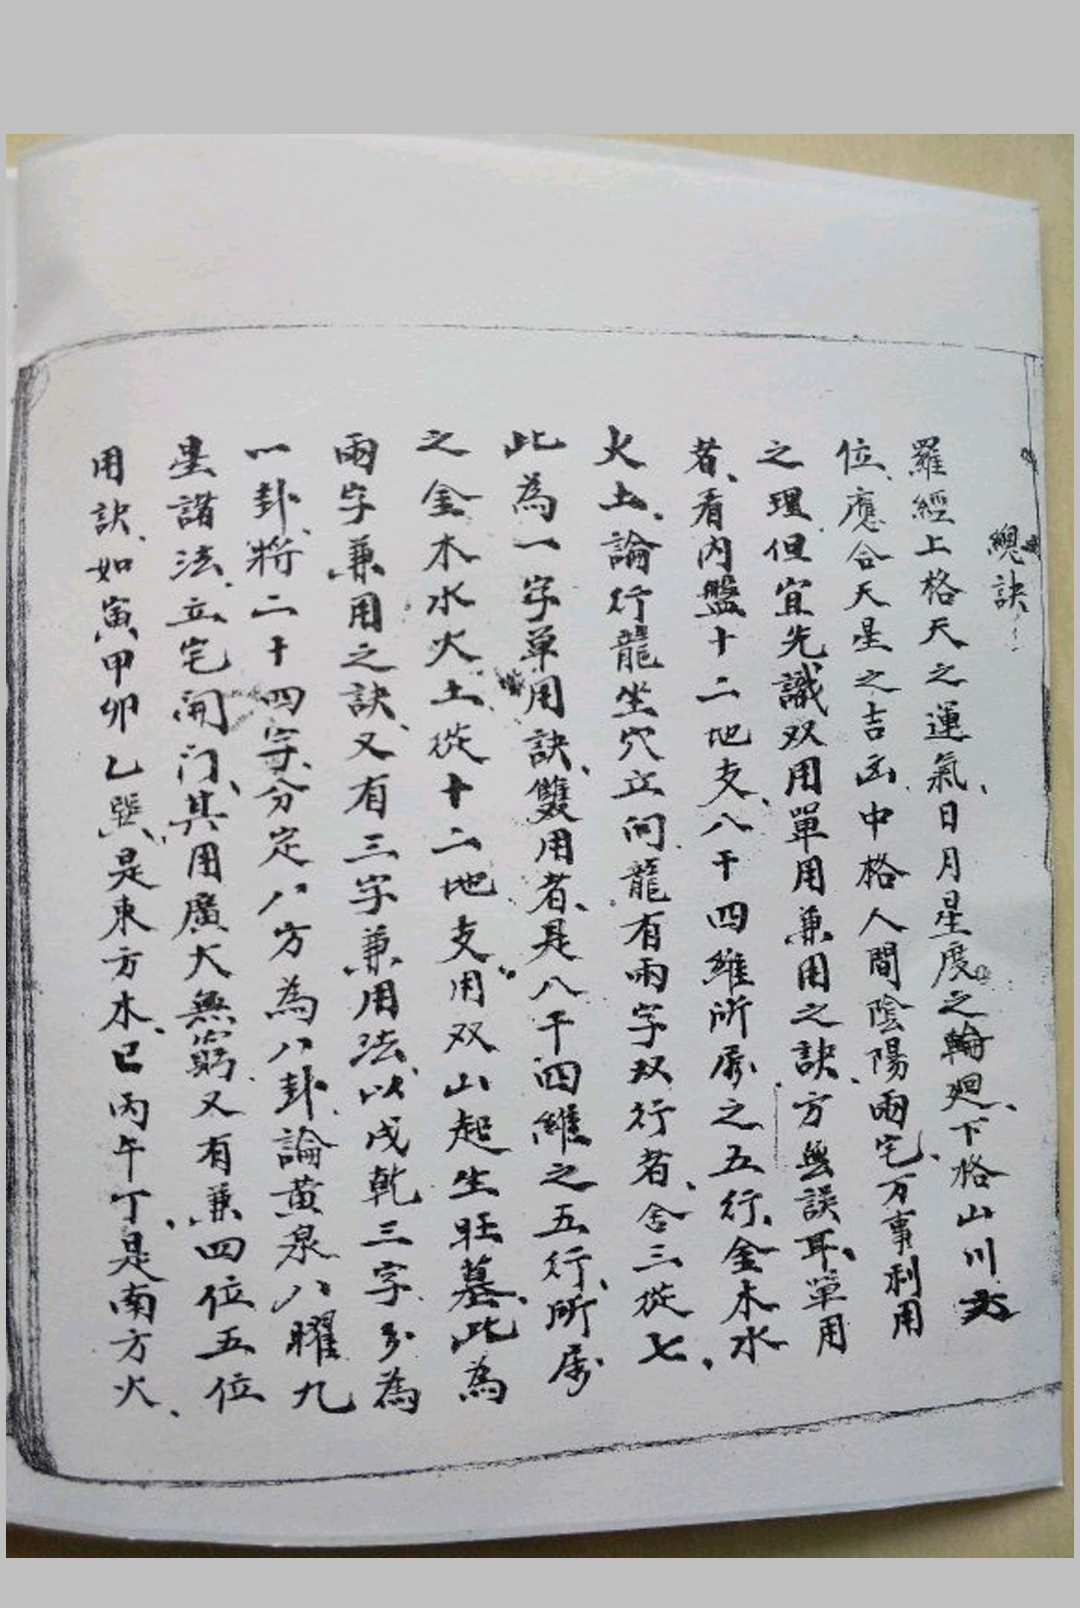 總訣
羅經上格天之運氣、日月星度之輪廻、下格山川
位、應合天星之吉凶中格人間陰陽兩宅、万事利用
之理、但宜先識双用單用兼用之訣、方無誤耳、單用
者、看内盤十二地支、八干四維所属之五行、金木水
火土、論行龍坐穴立向、龍有兩字双行者、舍三從七、
此為一字單用訣、雙用者、是八干四維之五行、所属
之金木水火土、從十二地支、用双山起生旺墓、此為
兩字兼用之訣、又有三字兼用法、以戌乾三字、分為
一卦、將二十四字、分定八方為八卦、論黄泉八曜九
星諸法、立宅開门、其用廣大無窮、又有兼四位五位
用訣、如寅甲卯乙巽、是東方木、巳丙午丁、是南方火、